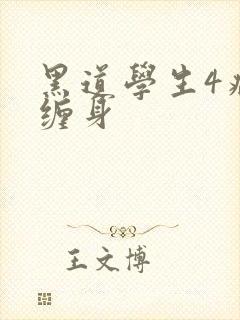 黑道學生4
缠身
王文博